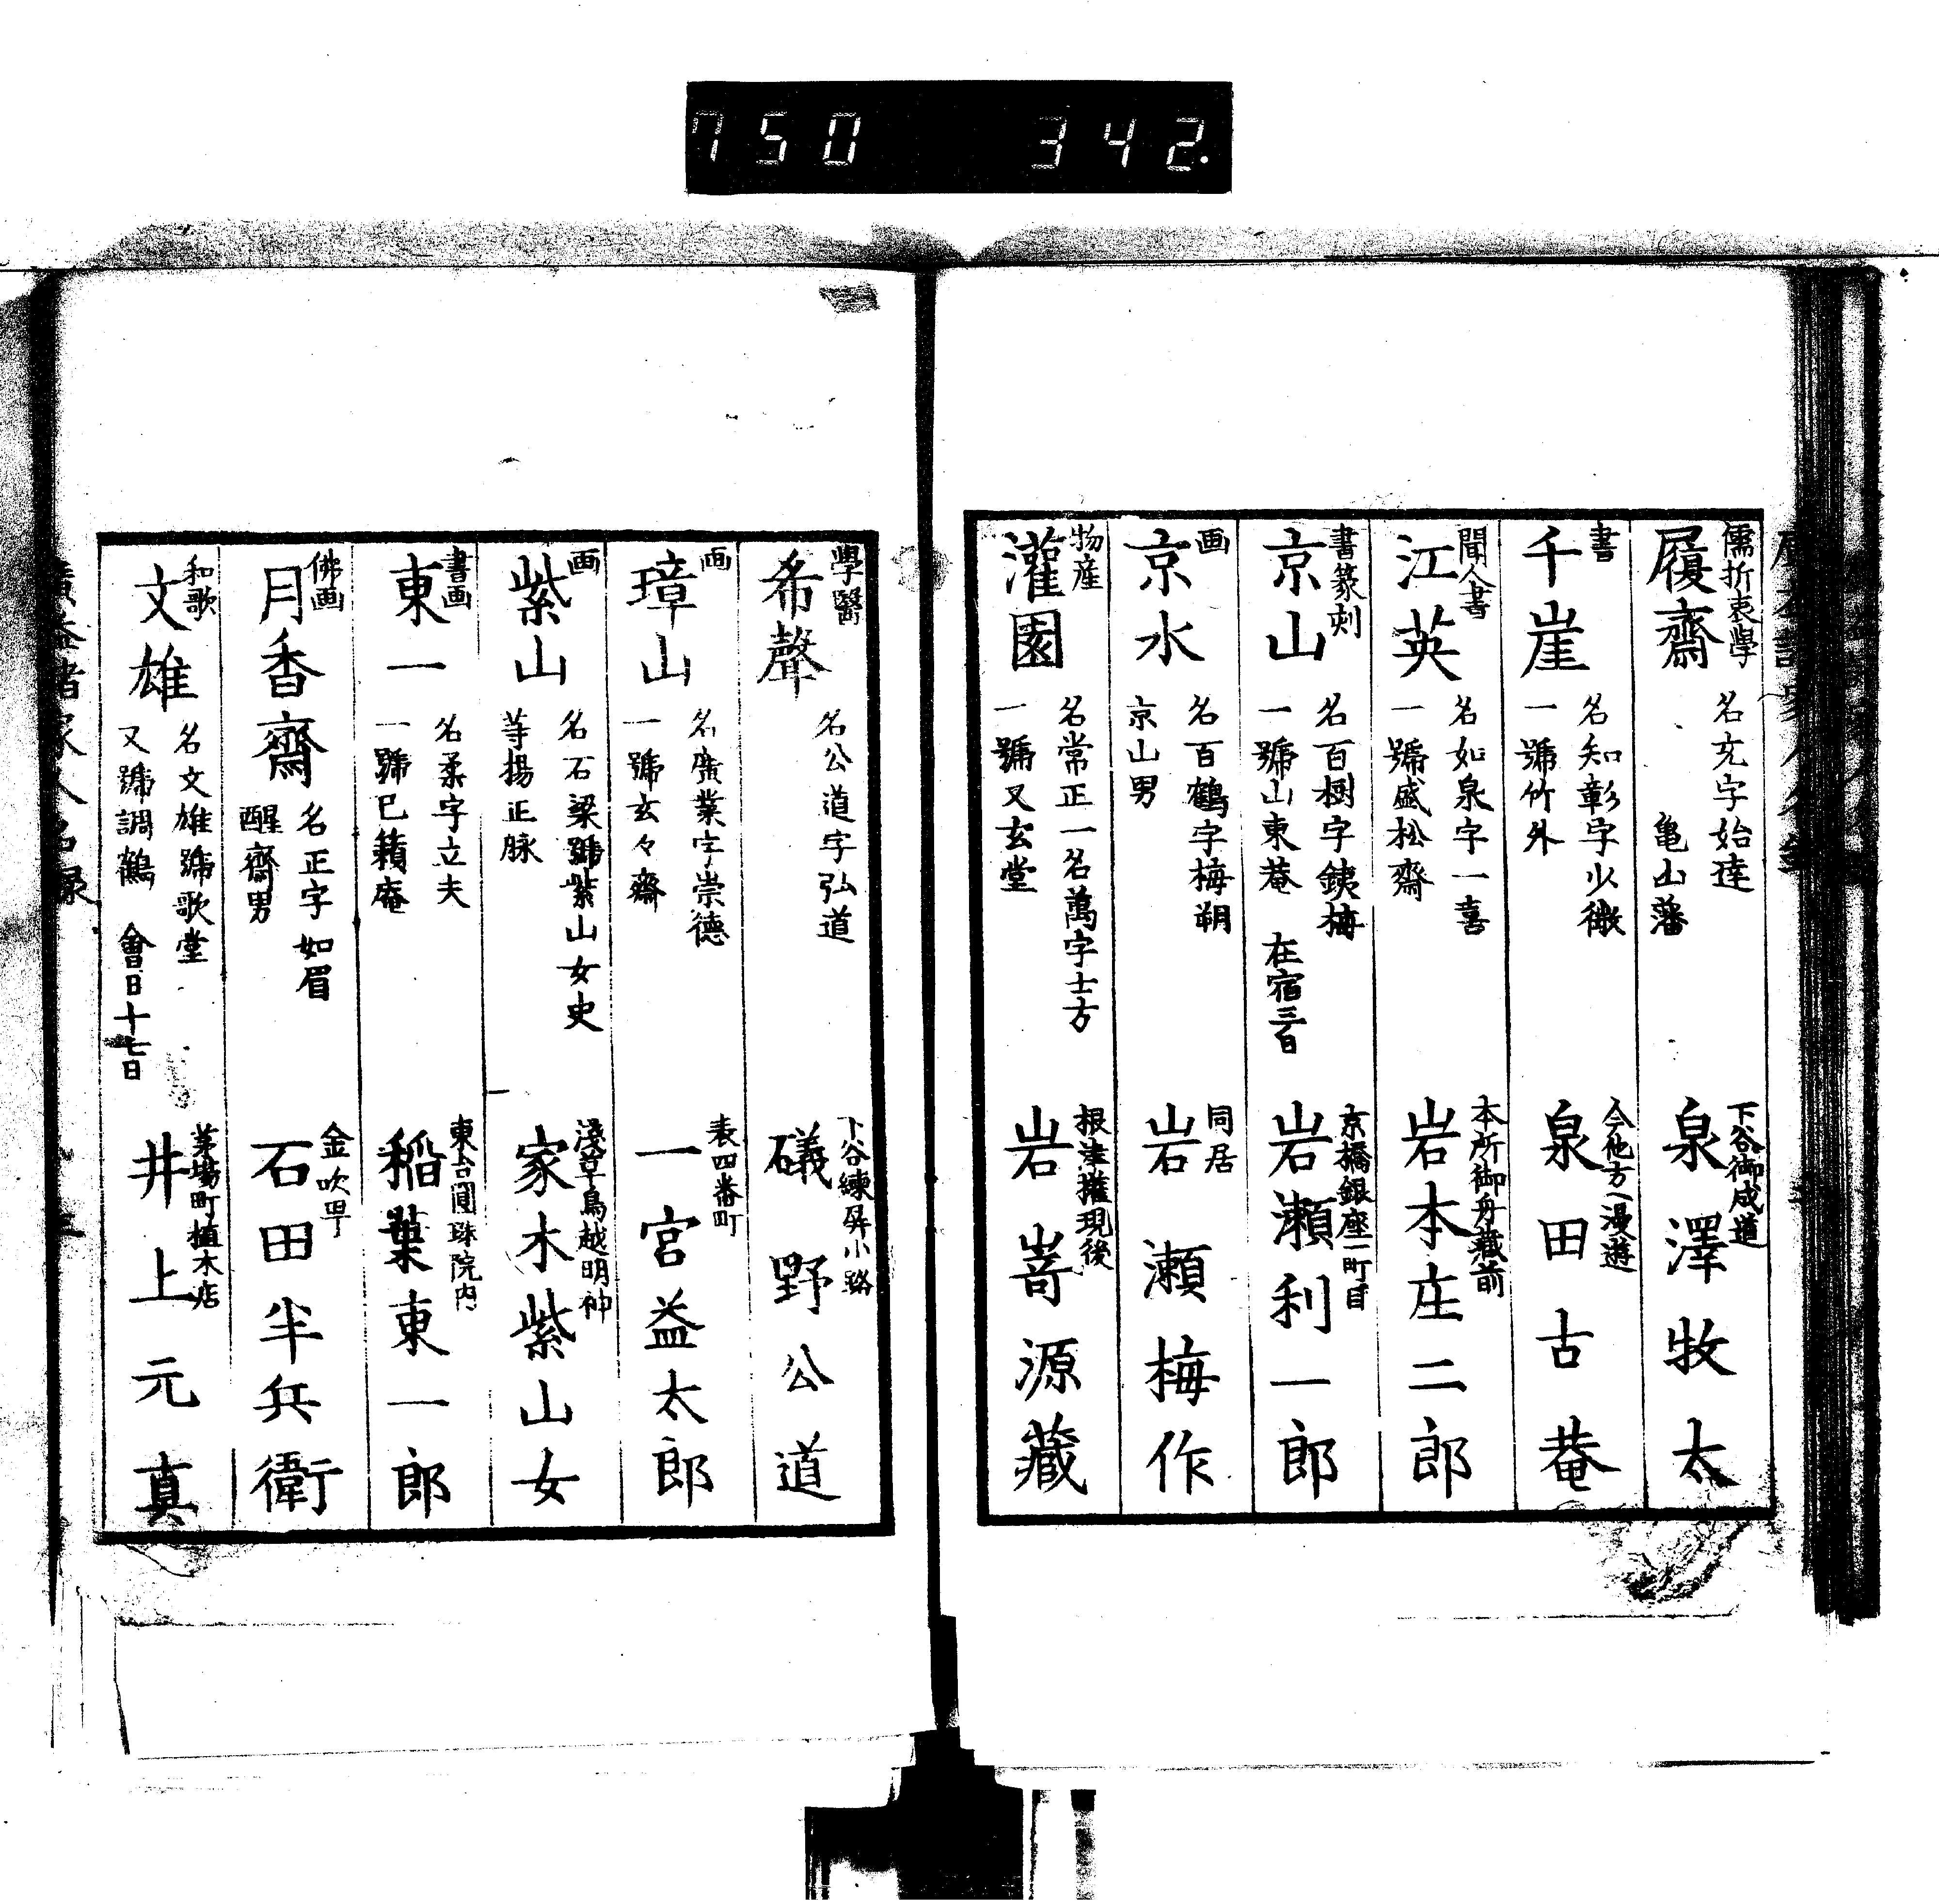 750 342.
儒折衷學
履齋
名充字始達
亀山藩
下谷御成道
泉澤牧太
書
千崖
名知彰字少微
一號竹外
今他方へ漫遊
泉田古菴
聞人書
江英
名如泉字一喜
一號盛松齋
本所御舟藏前
岩本庄二郎
書篆刻
京山
名百樹字鉄梅
一號山東菴 在宿三百
京橋銀座一町目
岩瀬利一郎
画
京水
名百鶴字梅朔
京山男
同居
岩瀬梅作
物産
灌園
名常正一名萬字士方
一號又玄堂
根津權現後
岩嵜源藏
學醫
希聲
名公道字弘道
下谷練屏小路
礒野公道
画
璋山
名廣業字崇德
一號玄々齋
表四番町
一宮益太郎
画
紫山
名石梁號紫山女史
等揚正脉
淺草鳥越明神
家木紫山女
書画
東一
名柔字立夫
一號已籟庵
東台圓珠院内
稲葉東一郎
佛画
月香齋
名正字如眉
醒齋男
金吹町
石田半兵衛
和歌
文雄
名文雄號歌堂
又號調鶴 會日十七日
茅場町植木店
井上元真
廣益諸家人名録
三